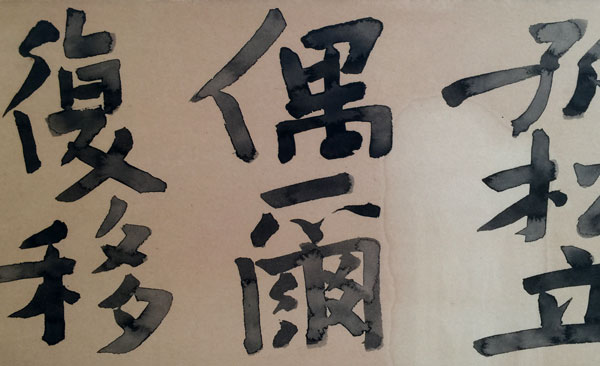 孤松立
偶爾
復移